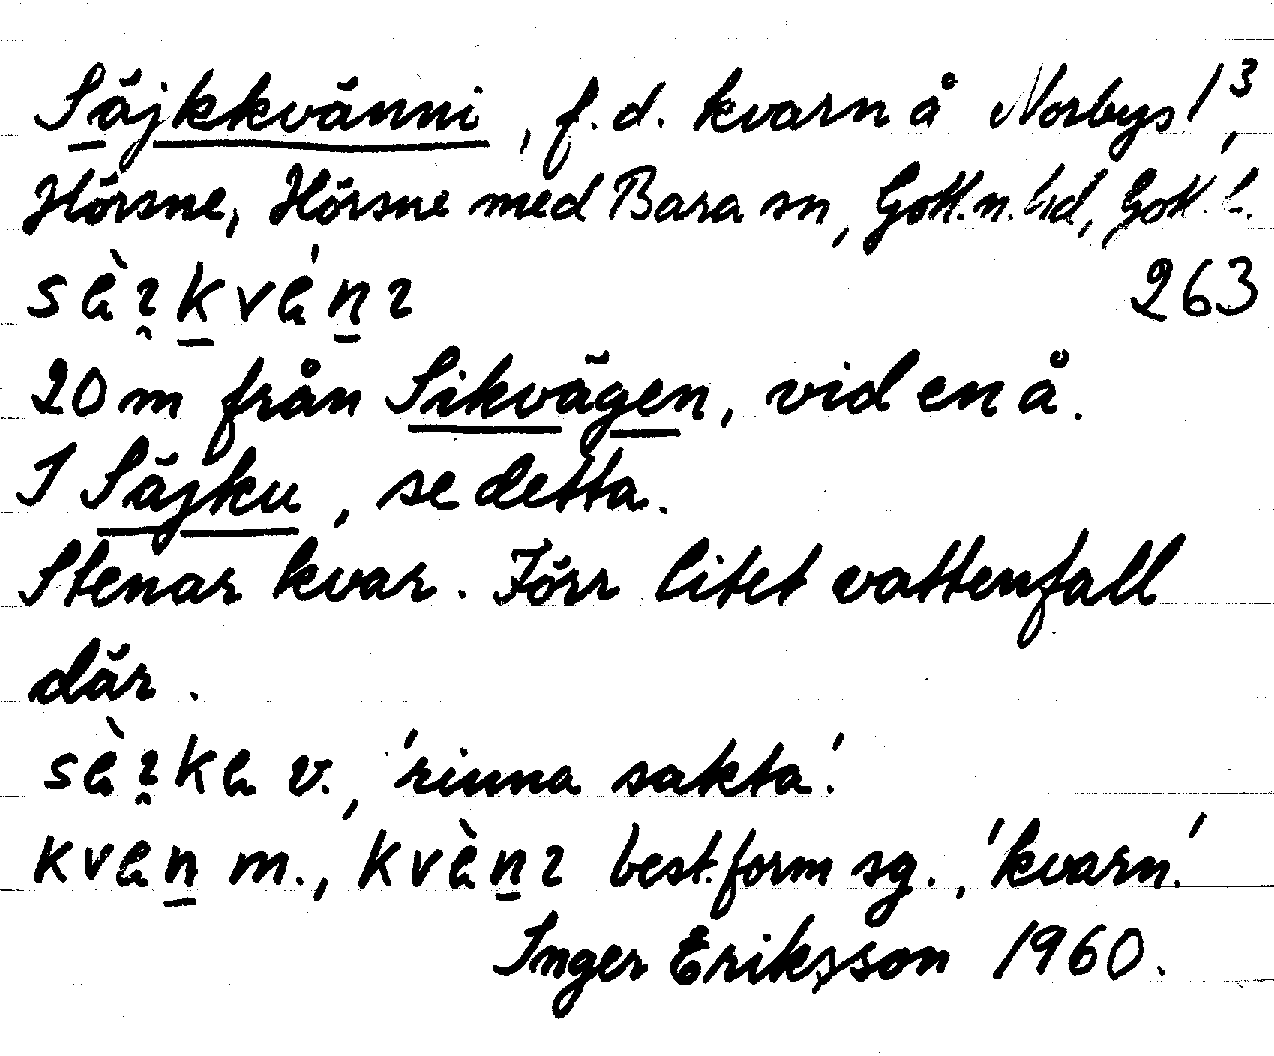 Säjkkvänni, f.d. kvarn å Norbys 1³,
Hörsne, Hörsne med Bara sn, Gotl.n.hd, Gotl.l.
263
20 m från Sikvägen, vid en å.
I Säjku, se detta.
Stenar kvar. Förr litet vattenfall
där.
v., 'rinna sakta'.
m., best.form sg., 'kvarn'.
Inger Eriksson 1960.